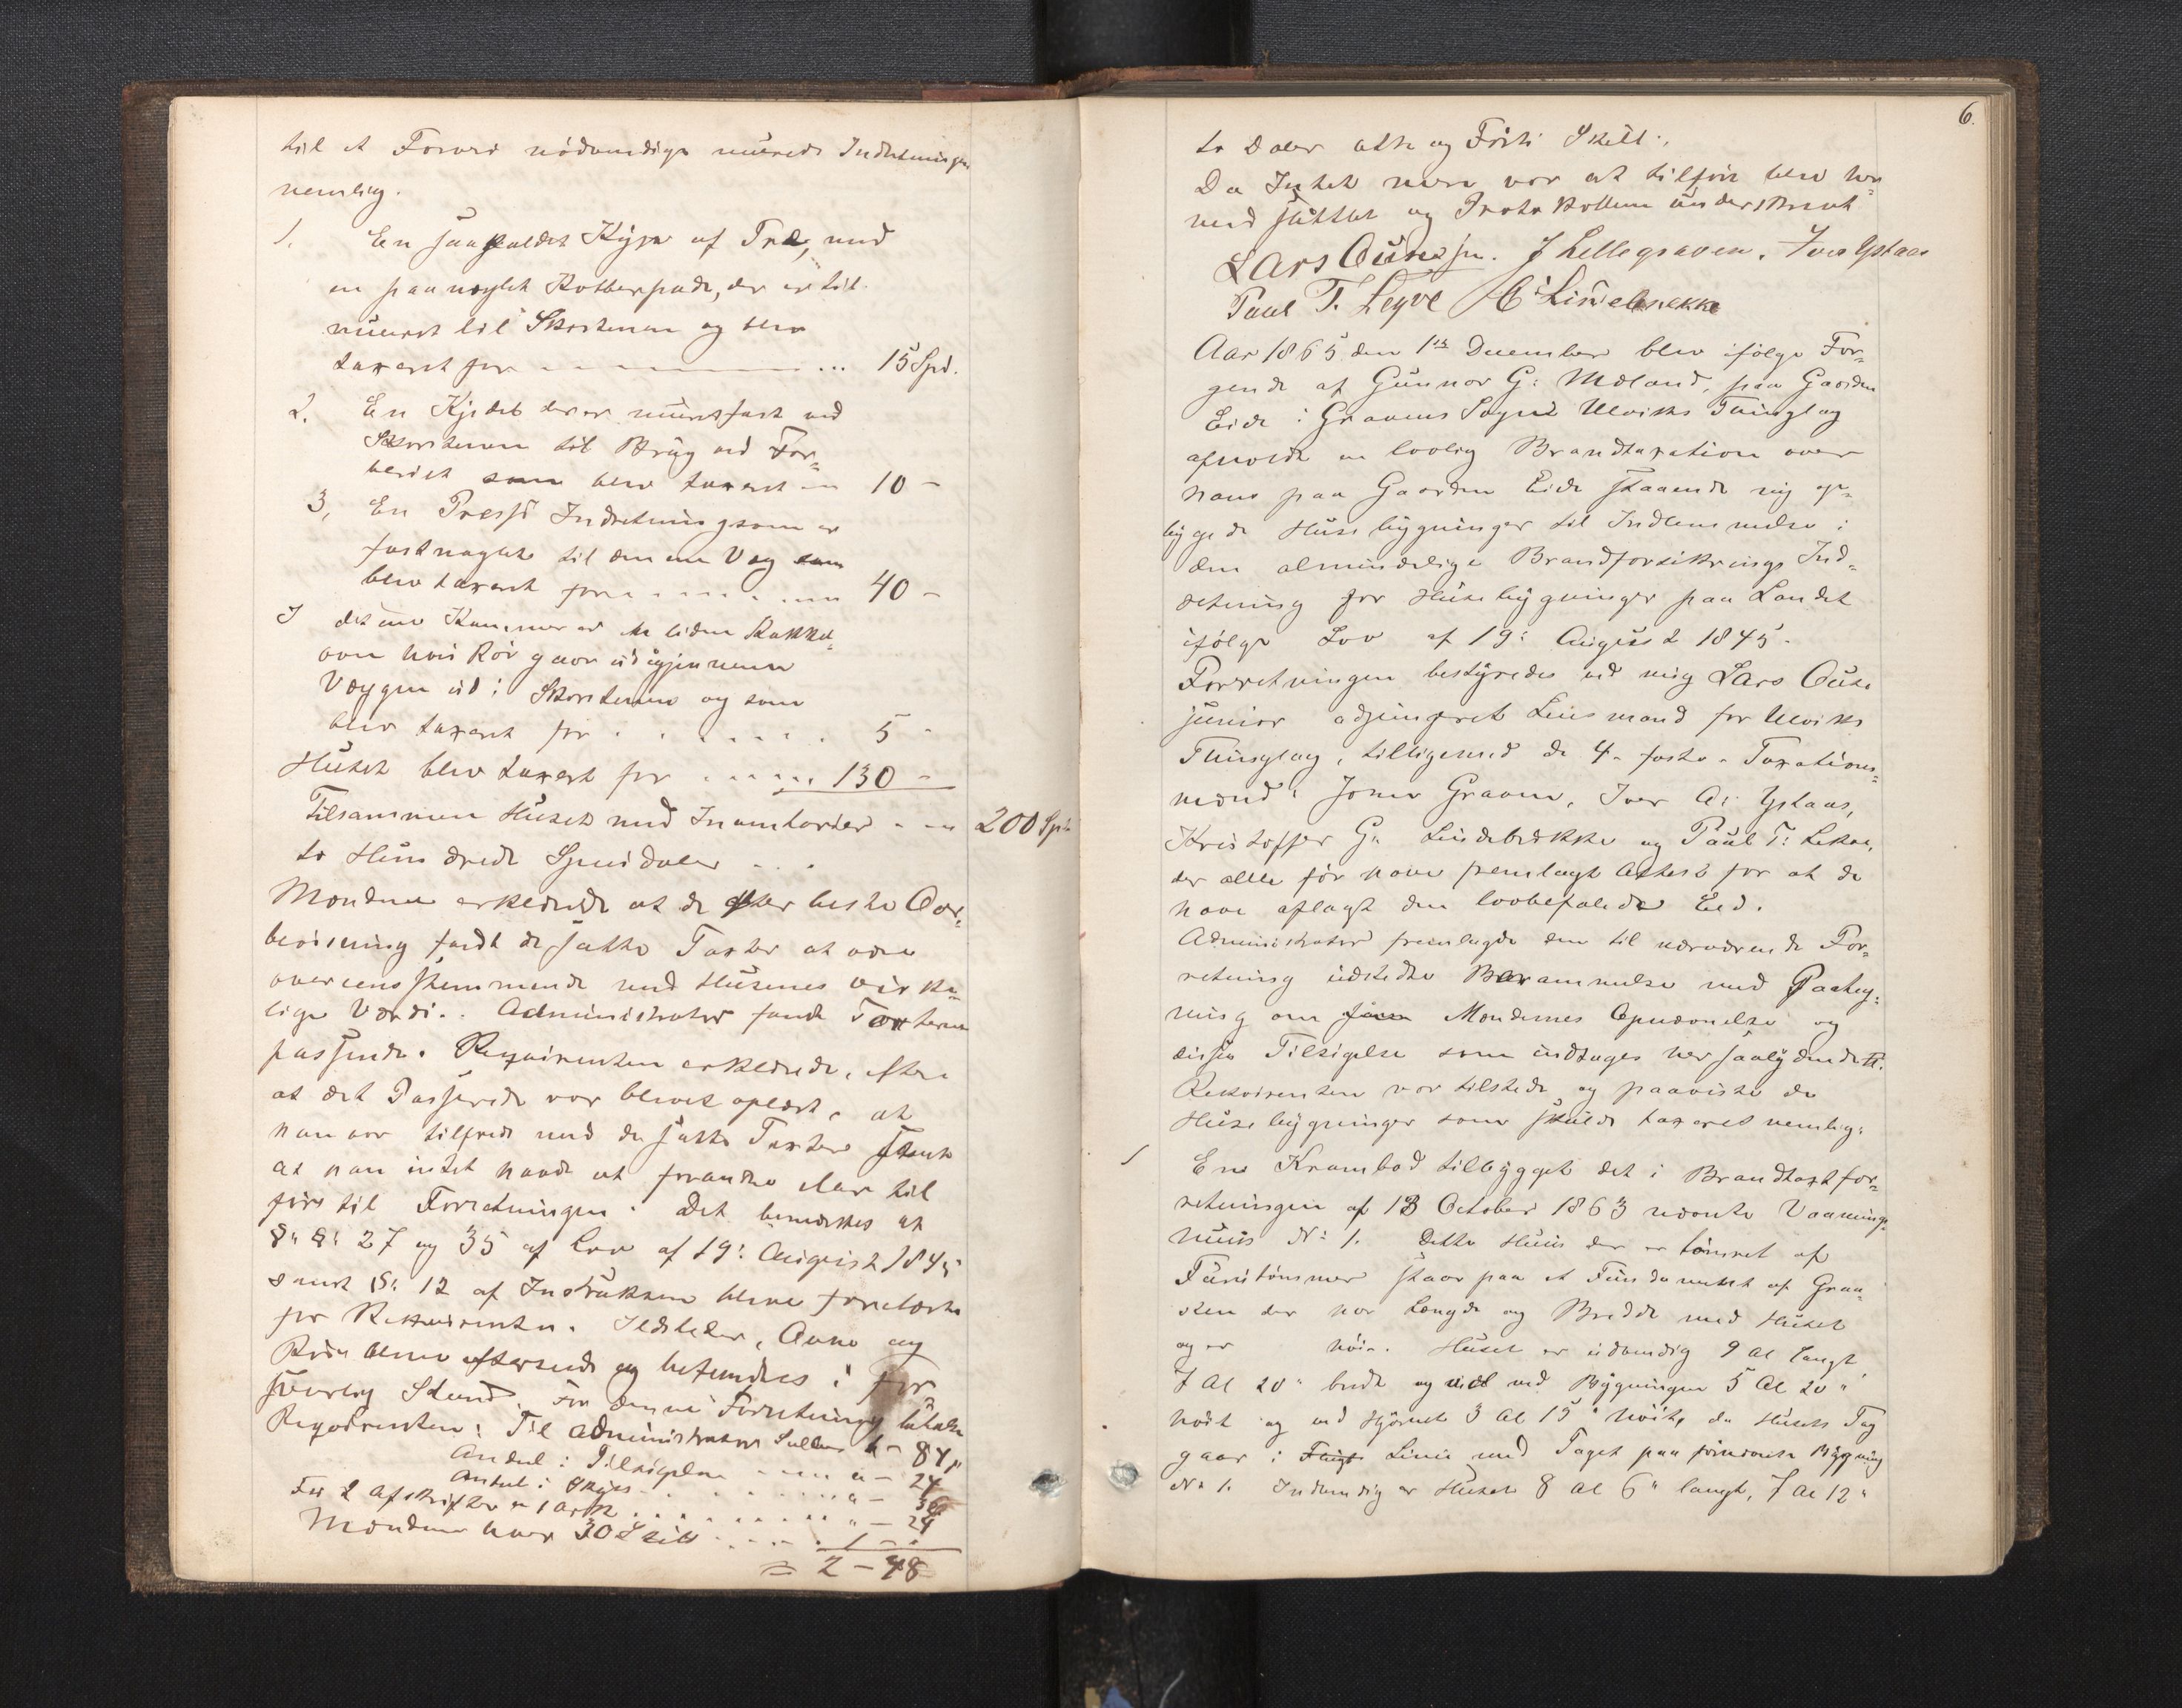 til et Farveri nödvendige murede Indretninger
nemlig.
1. En saakaldet Kype af Træ, med
en paanaglet Kobberpade, der er til-
muret til Skorstenen og blev
taxeret for ... 15 Spd.
2. En Kjedel der er muret fast ved
Skorstenen til Brug ved Far-
veriet som blev taxeret 10 -
3, En Presse Indretning som er
fastnaglet til den ene Væg som
blev taxeret for 40 -
I det ene Kammer er en liden Kakkel-
ovn hvis Rör gaar ud igjennem
Væggen ud i Skorstenen og som
blev taxeret for 5 -
Huset blev taxeret for 130 -
Tilsammen Huset med Inventarier 200 Spd
to Hundrede Speciedaler
Mændene erklærede at de efter beste Over-
beviisning fandt de satte Taxter at være
overeensstemmende med Husenes virke-
lige Værdi. Administrator fandt Taxterne
passende. Reqvirenten erklærede, efter
at det Passerede var blevet oplæst, at
han var tilfreds med de satte Taxter samt
at han intet havde at forandre eller til
före til Forretningen. Det bemærkes at
§: §: 27 og 35 af Lov af 19: August 1845
samt §: 12 af Instruksen bleve forelæste
for Rekvirenten. Ildsteder, Ovne og
Rör bleve efterseede og befundtes i for
svarlig Stand. For denne Forretning betaler
Reqvirenten: Til Administrator Sallær " - 84 "
Andel i Tilsigelse " - 24
Andel i Skyds " - 36
For 2 Afskrifter a 1 Ark " - 24
Mændene hver 30 Skill 1 - "
= 2 - 48
6.
to Daler otte og Förti Skill:
Da Intet mere var at tilföie blev her-
med sluttet og Protokollen underskrevet
Lars Ouse jn. J Lellegraven. Iver Ystaas
Paul T. Leqve C Lindebrekke
Aar 1865 den 1ste December blev ifölge For-
gende af Gunnar G: Mæland, paa Gaarden
Eide i Gravens Sogn Ulviks Thinglag
afholdt en lovlig Brandtaxation over
hans paa Gaarden Eide staaende ny op-
bygede Husebygninger til Indlemmelse i
den almindelige Brandforsikrings Ind-
retning for Husebygninger paa Landet
ifölge Lov af 19: August 1845.
Forretningen bestyredes ved mig Lars Ouse
junior adjungeret Lensmand for Ulviks
Thinglag, tilligemed de 4 faste Taxations-
mænd: Joner Graven, Iver A: Ystaas,
Kristoffer G: Lindebrække og Paul T: Lekve,
der alle för have fremlagt Attest for at de
have aflagt den lovbefalede Eed.
Administrator fremlagde den til nærværende For-
retning udstedte Berammelse med Paateg-
ning om Mændenes Opnævnelse og
disses Tilsigelse som indtages her saalydende #.
Rekvirenten var tilstede og paaviste de
Husebygninger som skulde taxeres nemlig:
1 En Krambod tilbygget det i Brandtaxtfor-
retningen af 13 October 1863 nævnte Vaanings-
huus No: 1. Dette Huus der er tömret af
Furutömmer staar paa et Fundament af Graa-
sten der har Længde og Bredde med Huset
og er höi. Huset er udvendig 9 Al langt,
7 Al 20 " bredt og vid ved Bygningen 5 Al 20 "
höit og ved Hjörnet 3 Al 15 " höit, da Husets Tag
gaar i Linie med Taget paa förnævnte Bygning
No 1. Indvendig er Huset 8 Al 6 " langt, 7 Al 12 "